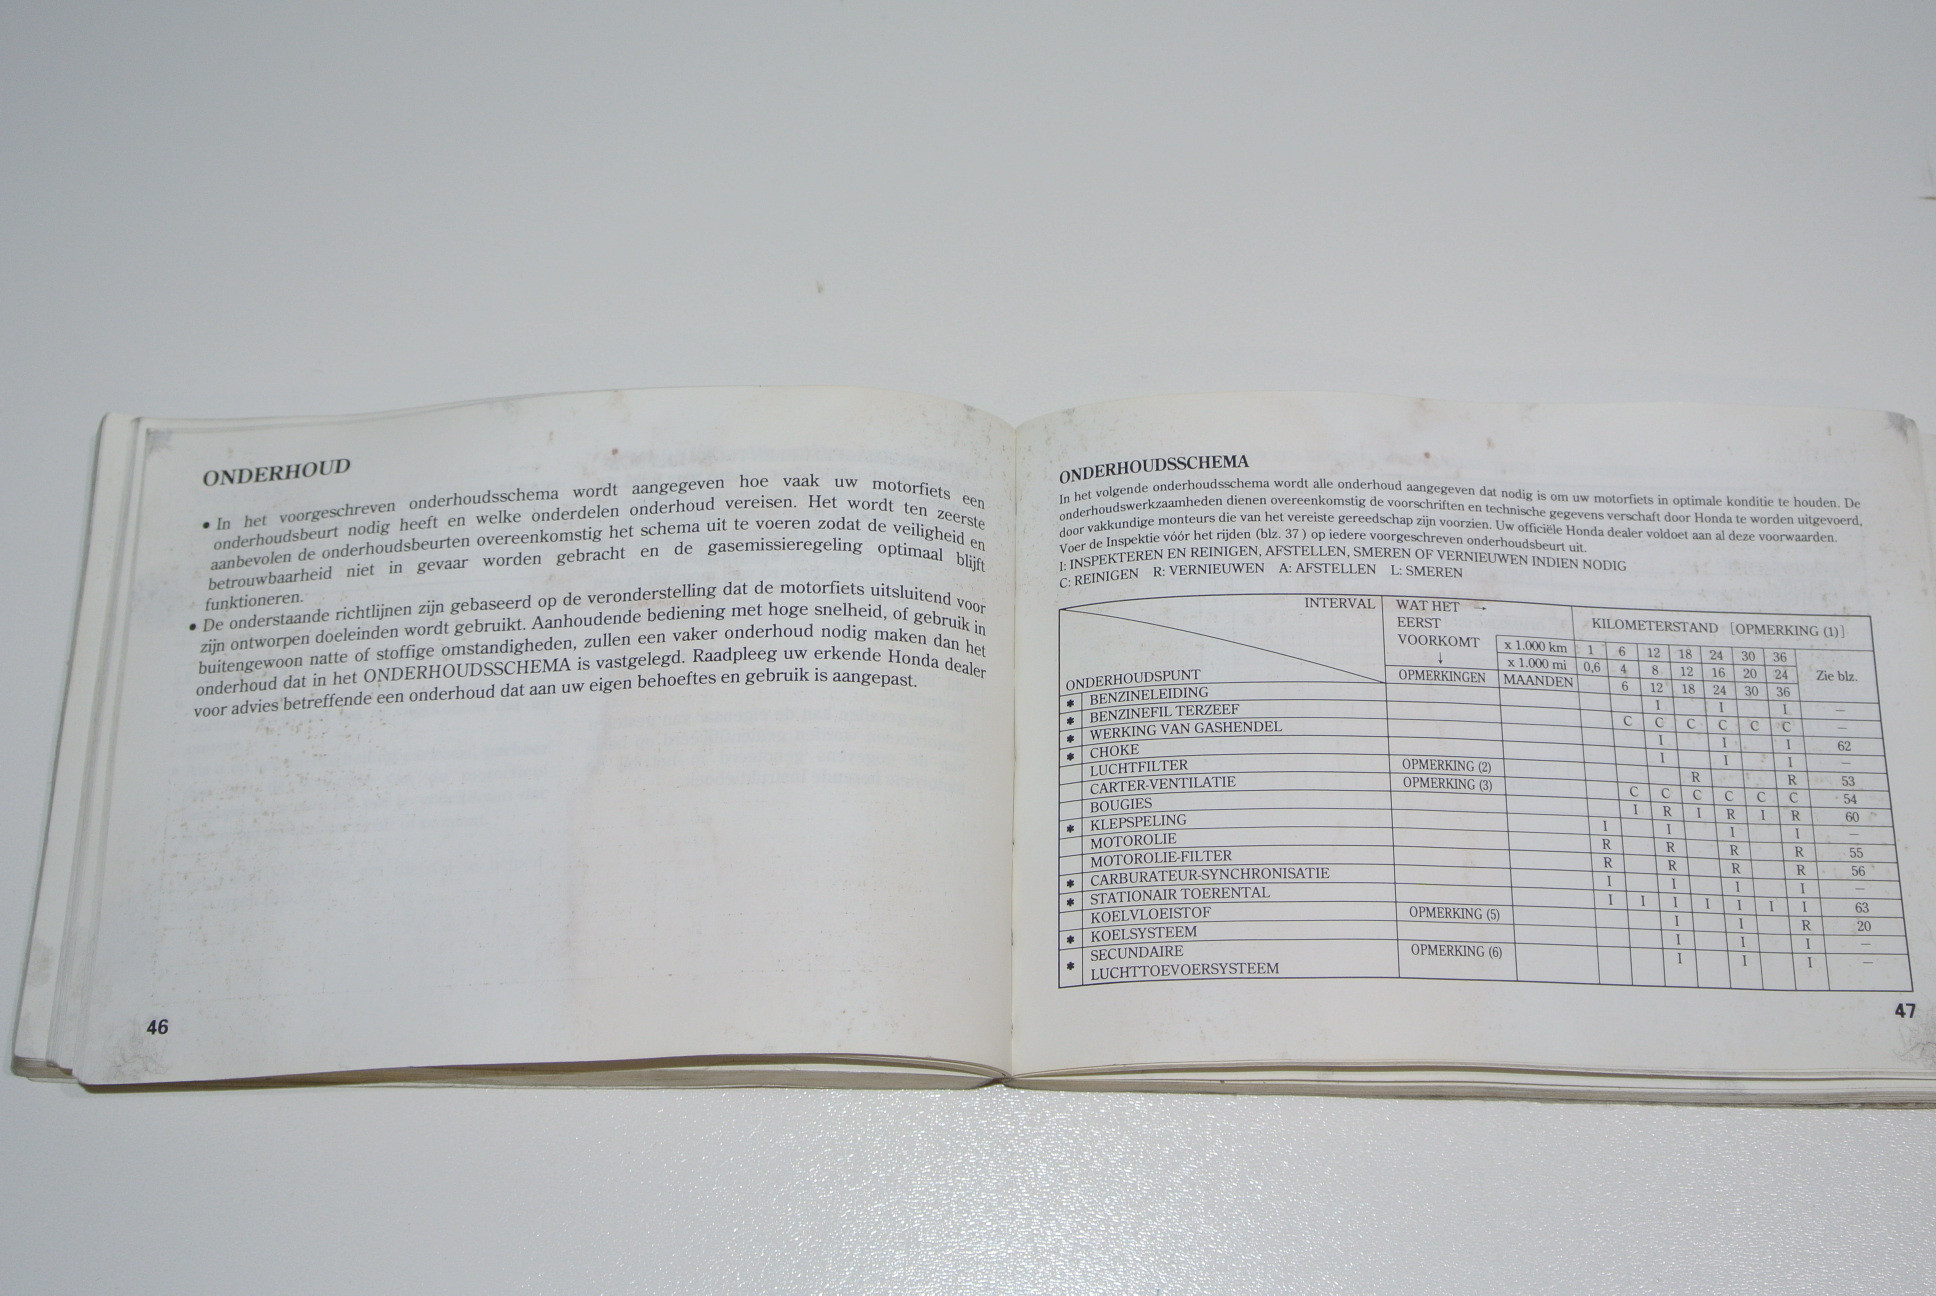 ONDERHOUD
• In het voorgeschreven onderhoudsschema wordt aangegeven hoe vaak uw motorfiets een
onderhoudsbeurt nodig heeft en welke onderdelen onderhoud vereisen. Het wordt ten zeerste
aanbevolen de onderhoudsbeurten overeenkomstig het schema uit te voeren zodat de veiligheid en
betrouwbaarheid niet in gevaar worden gebracht en de gasemissieregeling optimaal blijft
funktioneren.
• De onderstaande richtlijnen zijn gebaseerd op de veronderstelling dat de motorfiets uitsluitend voor
zijn ontworpen doeleinden wordt gebruikt. Aanhoudende bediening met hoge snelheid, of gebruik in
buitengewoon natte of stoffige omstandigheden, zullen een vaker onderhoud nodig maken dan het
onderhoud dat in het ONDERHOUDSSCHEMA is vastgelegd. Raadpleeg uw erkende Honda dealer
voor advies betreffende een onderhoud dat aan uw eigen behoeftes en gebruik is aangepast.
46
ONDERHOUDSSCHEMA
In het volgende onderhoudsschema wordt alle onderhoud aangegeven dat nodig is om uw motorfiets in optimale konditie te houden. De
onderhoudswerkzaamheden dienen overeenkomstig de voorschriften en technische gegevens verschaft door Honda te worden uitgevoerd,
door vakkundige monteurs die van het vereiste gereedschap zijn voorzien. Uw officiële Honda dealer voldoet aan al deze voorwaarden.
Voer de Inspektie vóór het rijden (blz. 37 ) op iedere voorgeschreven onderhoudsbeurt uit.
I: INSPEKTEREN EN REINIGEN, AFSTELLEN, SMEREN OF VERNIEUWEN INDIEN NODIG
C: REINIGEN R: VERNIEUWEN A: AFSTELLEN L: SMEREN
INTERVAL WAT HET →
EERST
VOORKOMT
↓
KILOMETERSTAND [OPMERKING (1)]
x 1.000 km 1 6 12 18 24 30 36
x 1.000 mi 0,6 4 8 12 16 20 24 Zie blz.
ONDERHOUDSPUNT OPMERKINGEN MAANDEN 6 12 18 24 30 36
* BENZINELEIDING I I I –
* BENZINEFIL TERZEEF C C C C C C –
* WERKING VAN GASHENDEL I I I 62
* CHOKE I I I –
LUCHTFILTER OPMERKING (2) R R 53
CARTER-VENTILATIE OPMERKING (3) C C C C C C 54
BOUGIES I R I R I R 60
* KLEPSPELING I I I I –
MOTOROLIE R R R R 55
MOTOROLIE-FILTER R R R R 56
* CARBURATEUR-SYNCHRONISATIE I I I I –
* STATIONAIR TOERENTAL I I I I I I I 63
KOELVLOEISTOF OPMERKING (5) I I R 20
* KOELSYSTEEM I I I –
* SECUNDAIRE OPMERKING (6) I I I –
LUCHTTOEVOERSYSTEEM
47